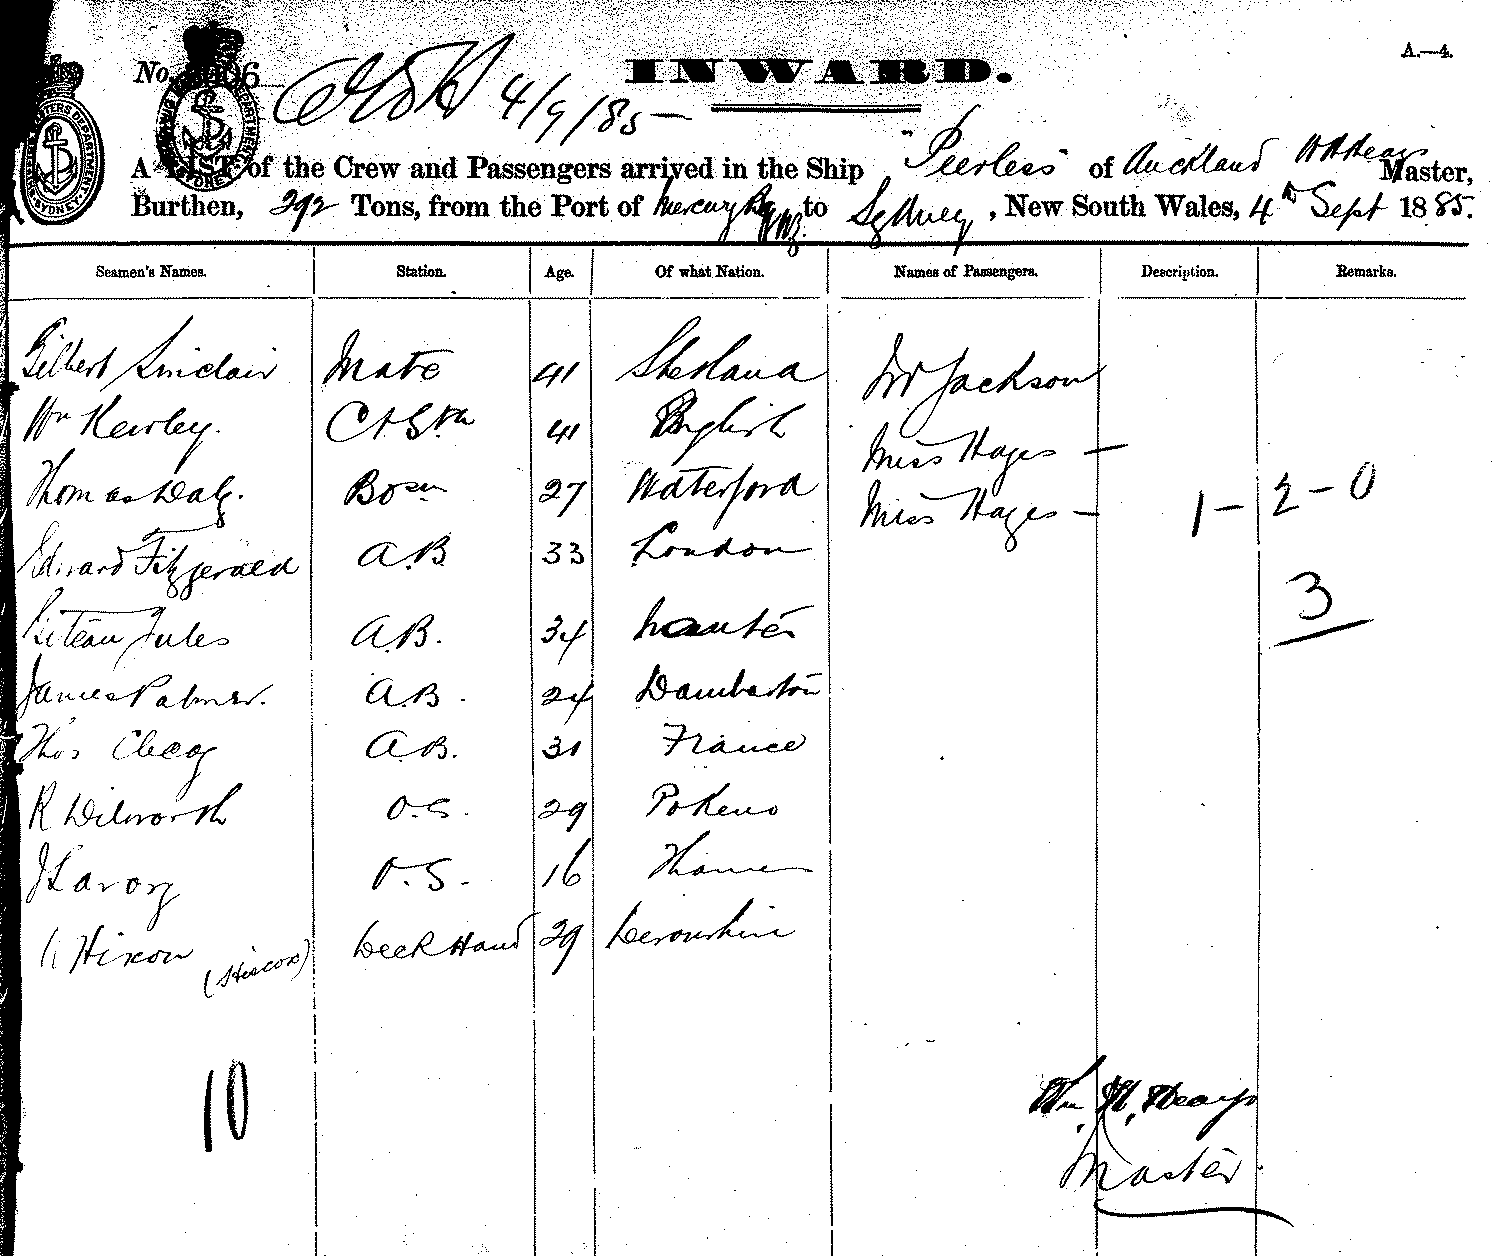 No.
4/9/85
INWARD.
A.—4.
A LIST of the Crew and Passengers arrived in the Ship "Peerless of Auckland Master,
Burthen, 292 Tons, from the Port of Mercury Bay NZ. to Sydney, New South Wales, 4th Sept 1885.
Seamen's Names. Station. Age. Of what Nation. Names of Passengers. Description. Remarks.
Gilbert Sinclair Mate 41 Shetland Mr Jackson
Wm Kewley. 41 English Miss Hayes —
Thomas Daly. Bosn 27 Waterford Miss Hayes — 1 - 2 - 0
Edward Fitzgerald A.B 33 London
3
Jules A.B. 34 Nantes
James Palmer. A.B. 24 Dumbarton
Thos Clegg A.B. 31 France
R Dilworth O.S. 29 Pokeno
J Lavory O.S. 16 Thames
Hixon (Hiscox) Deck Hand 29 Devonshire
10
Wm H. Heays
Master.